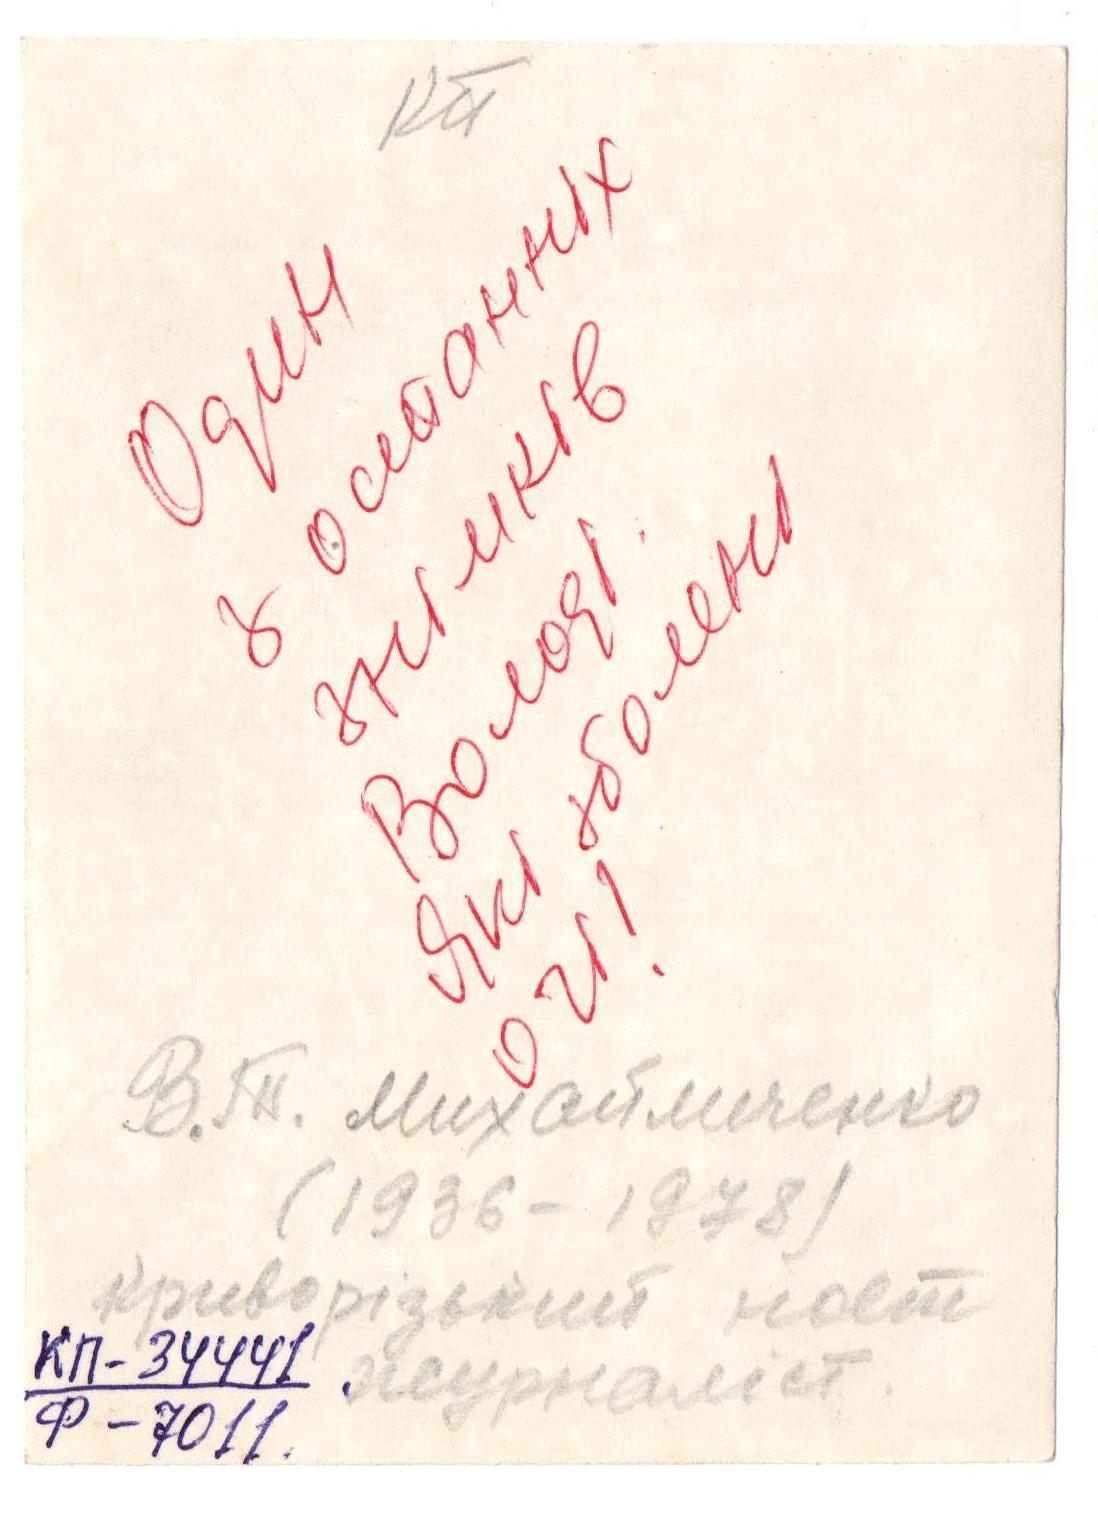 КП
Один
з останніх
знімків
Володі.
Які зболені
очі!
В.П. Михайличенко
(1936 - 1978)
криворізький поет
журналіст.
КП-34441
Ф-7011.